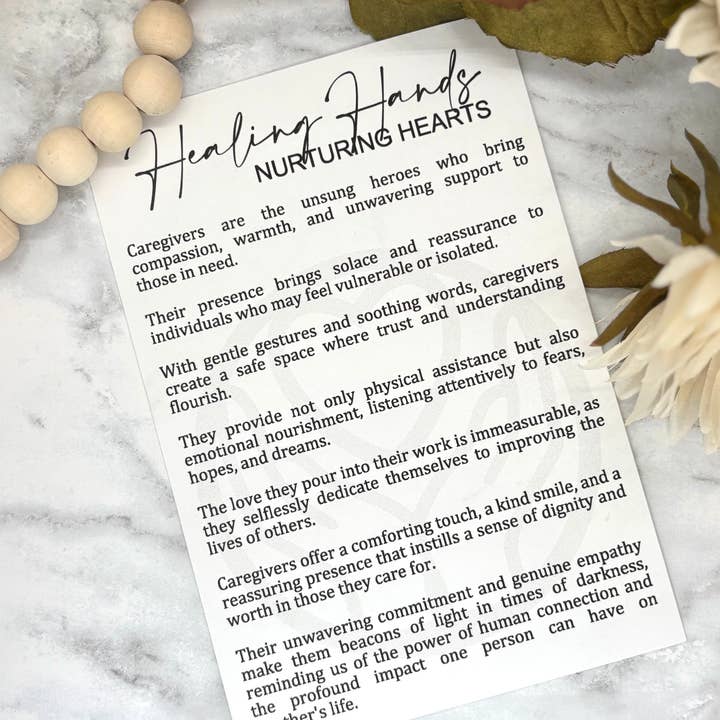 Healing Hands
NURTURING HEARTS
Caregivers are the unsung heroes who bring
compassion, warmth, and unwavering support to
those in need.
Their presence brings solace and reassurance to
individuals who may feel vulnerable or isolated.
With gentle gestures and soothing words, caregivers
create a safe space where trust and understanding
flourish.
They provide not only physical assistance but also
emotional nourishment, listening attentively to fears,
hopes, and dreams.
The love they pour into their work is immeasurable, as
they selflessly dedicate themselves to improving the
lives of others.
Caregivers offer a comforting touch, a kind smile, and a
reassuring presence that instills a sense of dignity and
worth in those they care for.
Their unwavering commitment and genuine empathy
make them beacons of light in times of darkness,
reminding us of the power of human connection and
the profound impact one person can have on
ther's life.